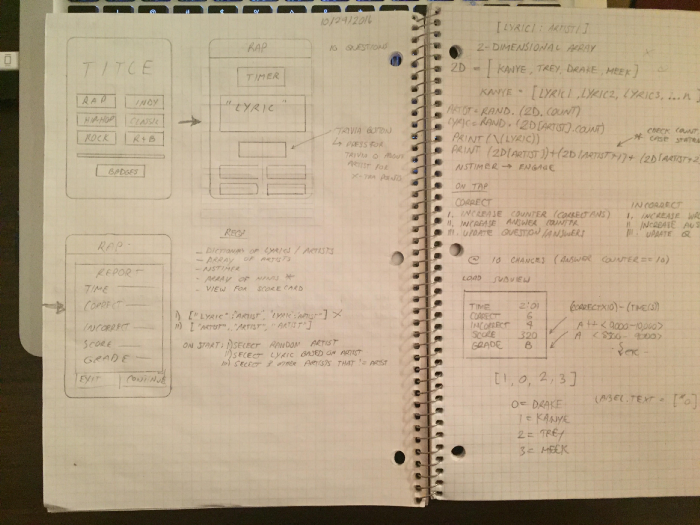 10/24/2016
TITLE
RAP
INDY
HIPHOP
CLASSIC
ROCK
R+B
BADGES
RAP
10 QUESTIONS
TIMER
"LYRIC"
TRIVIA BUTTON
↳ PRESS FOR
TRIVIA ABOUT
ARTIST FOR
POINTS
RAP
REPORT
TIME
CORRECT
INCORRECT
SCORE
GRADE
EXIT CONTINUE
REQS
- DICTIONARY OF LYRICS / ARTISTS
- ARRAY OF ARTISTS
- NSTIMER
- ARRAY OF
- VIEW FOR SCORECARD
I) ["LYRIC":"ARTIST",
II) ["ARTIST", "ARTIST", "ARTIST"]
ON START: I) SELECT RANDOM ARTIST
II) SELECT LYRIC BASED ON ARTIST
III) SELECT 3 OTHER ARTISTS THAT
[LYRIC: ARTIST]
2-DIMENSIONAL ARRAY
2D = [KANYE, TREY, DRAKE, MEEK]
KANYE = [LYRIC1, LYRIC2, LYRIC3, ...n
ARTIST = RAND. (2D.COUNT)
LYRIC = RAND. (2D[ARTIST].COUNT)
PRINT (\(LYRIC))
* CHECK COUNT
PRINT (2D[ARTIST])+(2D[ARTIST+1])+(2D[ARTIST+2
NSTIMER → ENGAGE
ON TAP
CORRECT
I. INCREASE COUNTER (CORRECTANS)
II. INCREASE ANSWER COUNTER
III. UPDATE QUESTION/ANSWERS
INCORRECT
I. INCREASE
II. INCREASE ANS
III. UPDATE Q
@ 10 CHANCES (ANSWER COUNTER == 10)
LOAD SUBVIEW
TIME 2:01
CORRECT 6
INCORRECT 4
SCORE 520
GRADE B
(CORRECT×10)-(TIME/5)
A+ < 9000-10,000>
A < 8500 - 9000>
ETC.
[1, 0, 2, 3]
0 = DRAKE
1 = KANYE
2 = TREY
3 = MEEK
LABEL.TEXT = ["0]